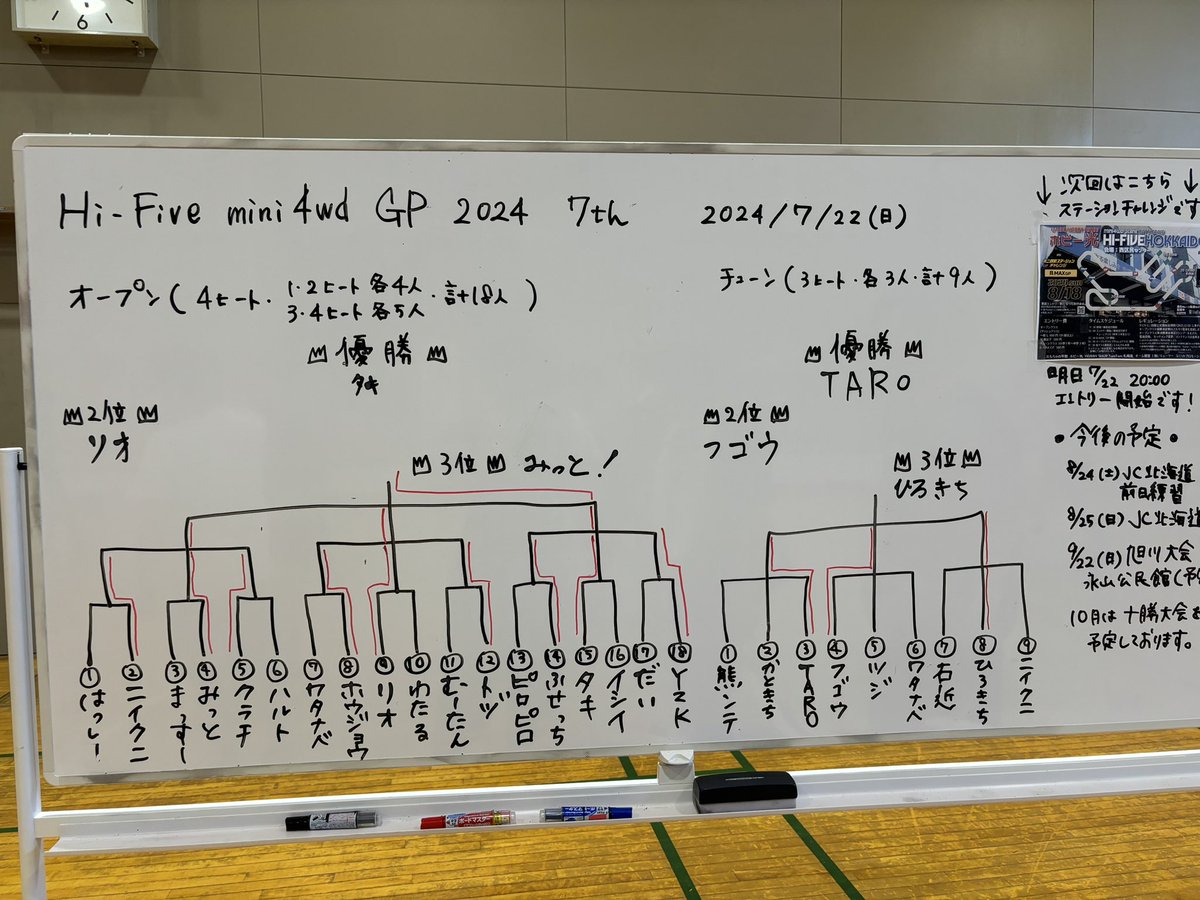 6
Hi-Five mini4wd GP 2024 7th
2024/7/22(日)
オープン(4ヒート・1・2ヒート 各4人・計18人)
3・4ヒート 各5人
優勝
タキ
2位
リオ
3位 みっと!
①はっしー
②ニイクニ
③まっすー
④みっと
⑤クラチ
⑥ハルト
⑦ワタナベ
⑧ホウジョウ
⑨リオ
⑩わたる
⑪むーたん
⑫トヅ
⑬ピロピロ
⑭ふせっち
⑮タキ
⑯イシイ
⑰だい
⑱YZK
チューン(3ヒート・各3人・計9人)
優勝
TARO
2位
フゴウ
3位
ひろきち
①熊ンテ
②かときち
③TARO
④フゴウ
⑤ツジ
⑥ワタナベ
⑦右近
⑧ひろきち
⑨ニイクニ
↓次回はこちら↓
ステーションチャレンジです
ホビー光 HI-FIVE HOKKAIDO
8/18
エントリー費 タイムスケジュール レギュレーション
明日 7/22 20:00
エントリー開始です!
●今後の予定●
8/24(土)JC北海道
前日練習
8/25(日)JC北海道
9/22(日)旭川大会
永山公民館(予
10月は十勝大会を
予定しております。
ボードマスター